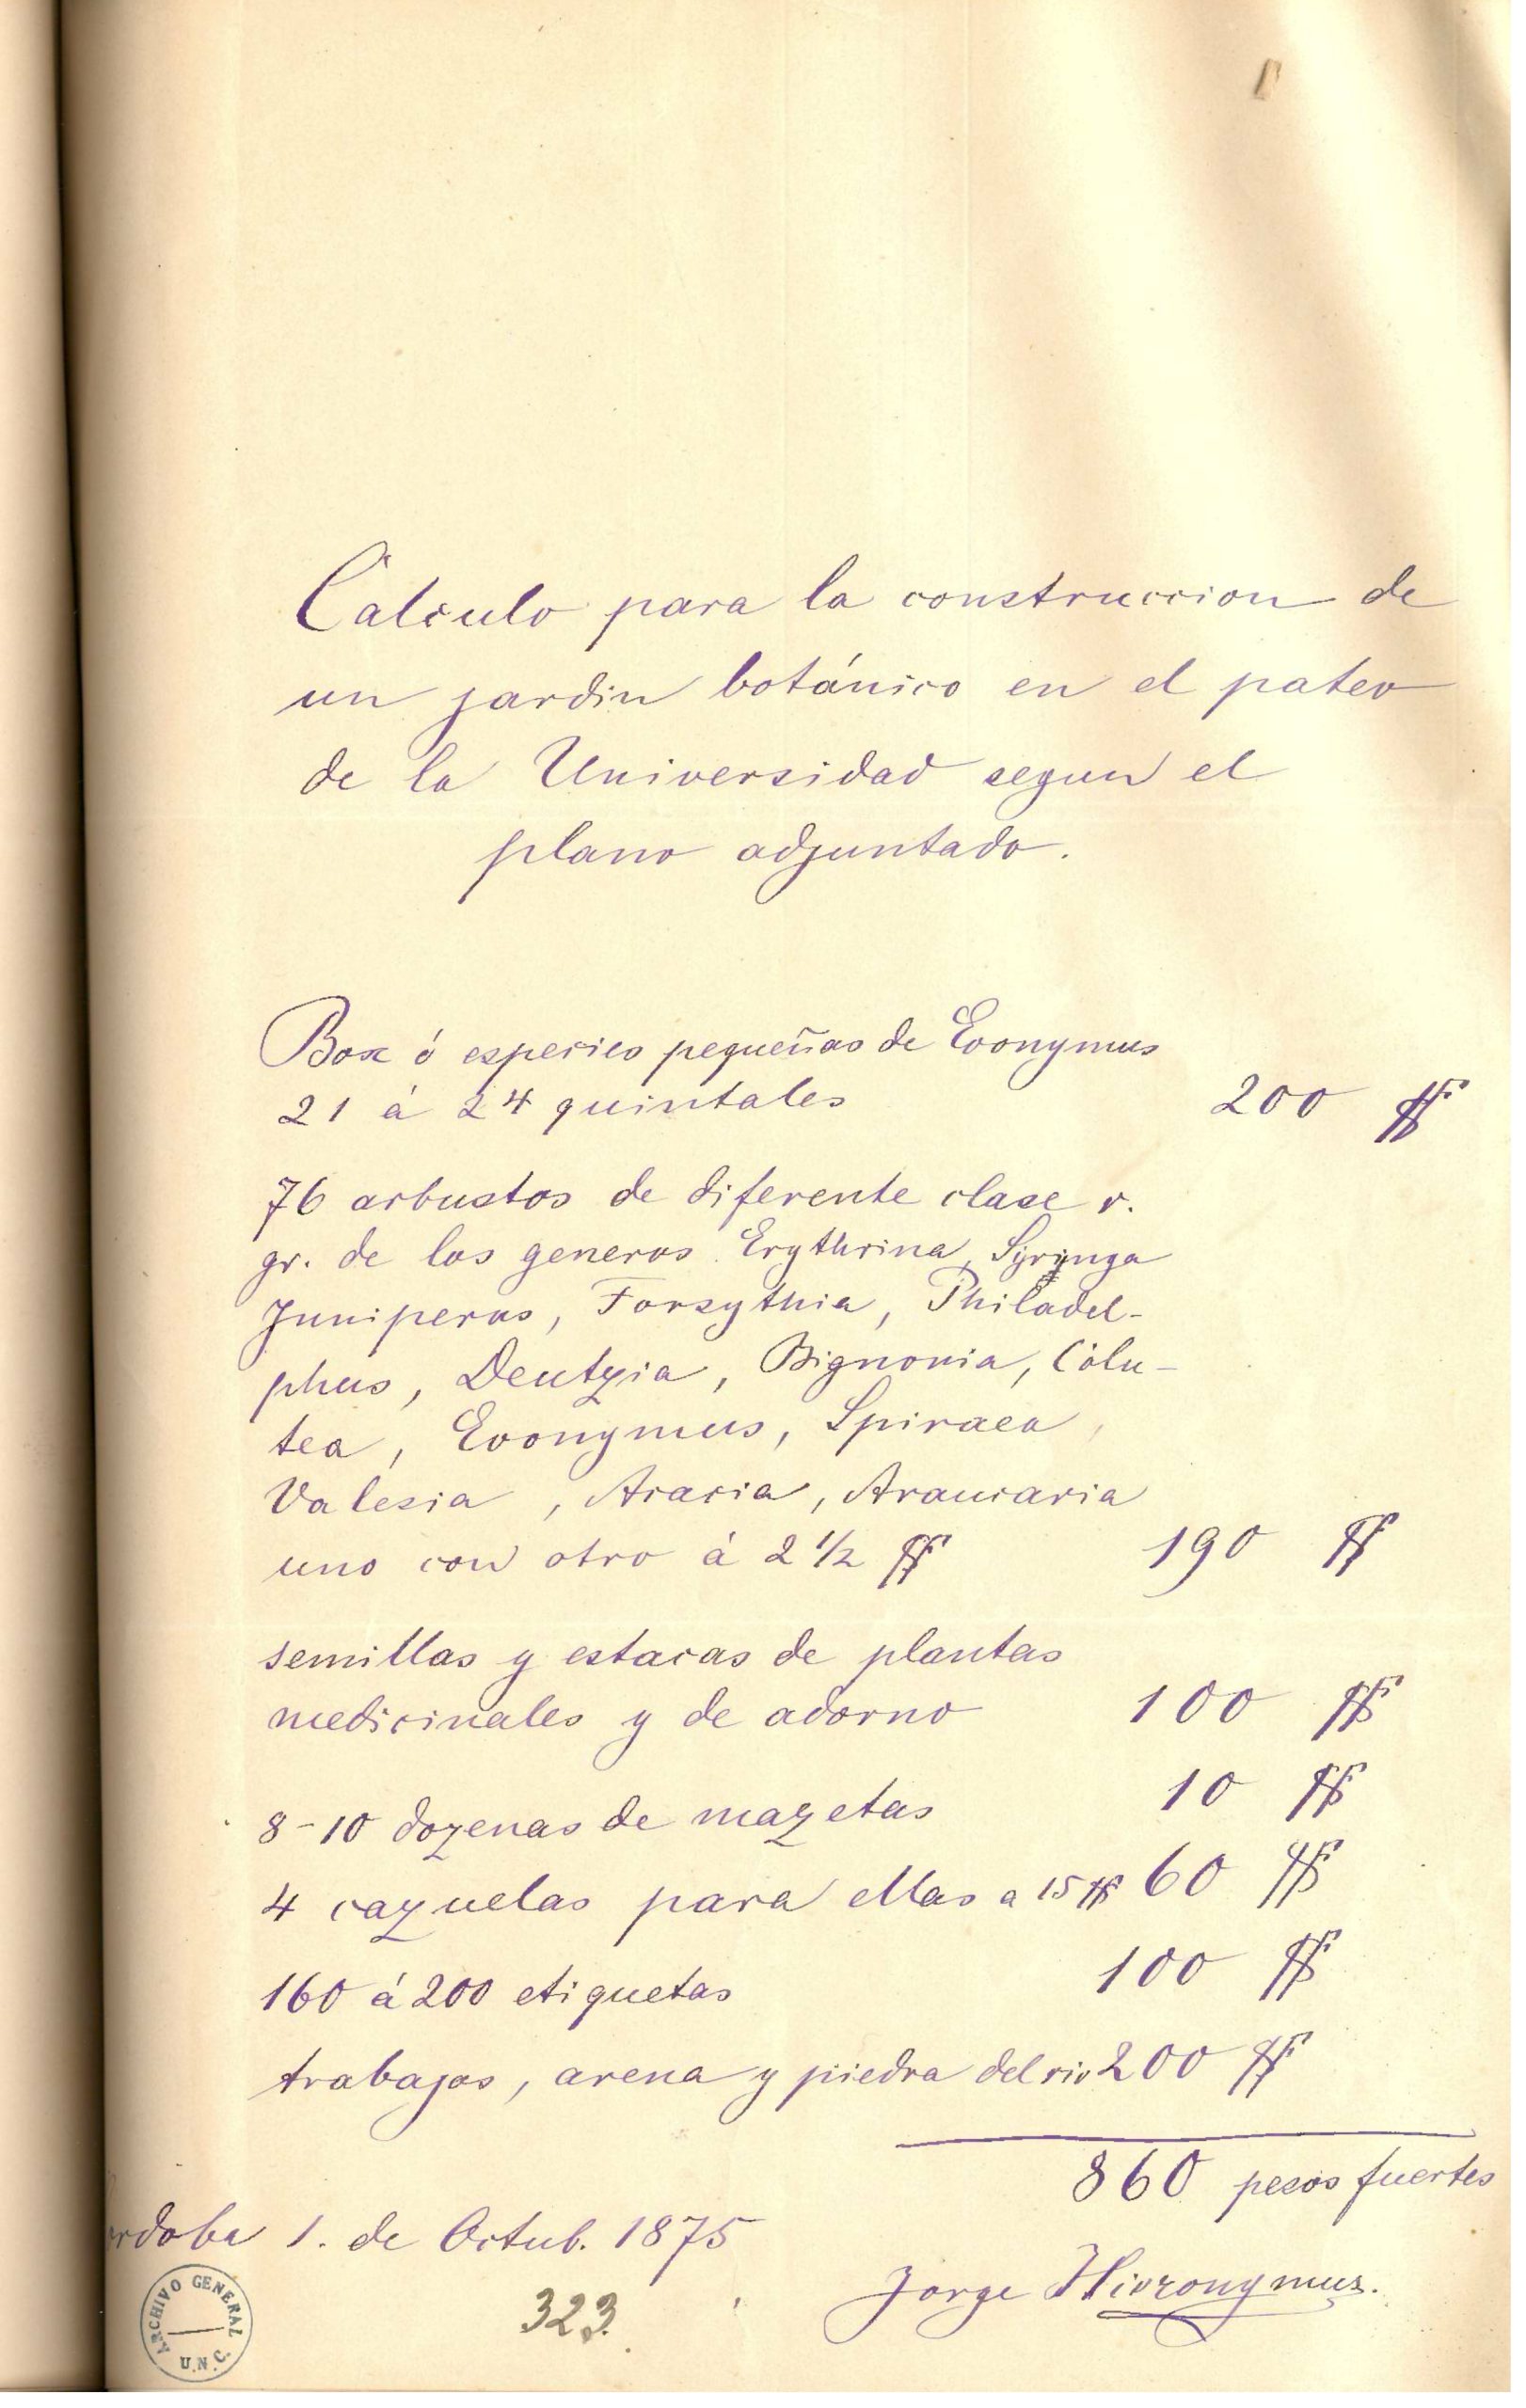 Calculo para la construccion de
un jardin botánico en el pateo
de la Universidad segun el
plano adjuntado.
Box ó especies pequeñas de Evonymus
21 á 24 quintales 200 $f
76 arbustos de diferente clase v.
gr. de los generos Erythrina, Syringa
Juniperus, Forsythia, Philadel-
phus, Deutzia, Bignonia, Colu-
tea, Evonymus, Spiraea,
Valesia, Acacia, Araucaria
uno con otro á 2 1/2 $f 190 $f
semillas y estacas de plantas
medicinales y de adorno 100 $f
8-10 dozenas de mazetas 10 $f
4 cazuelas para ellas a 15 $f 60 $f
160 á 200 etiquetas 100 $f
trabajos, arena y piedra del rio 200 $f
860 pesos fuertes
ordoba 1. de Octub. 1875
Jorge Hieronymus.
323.
ARCHIVO GENERAL
U.N.C.